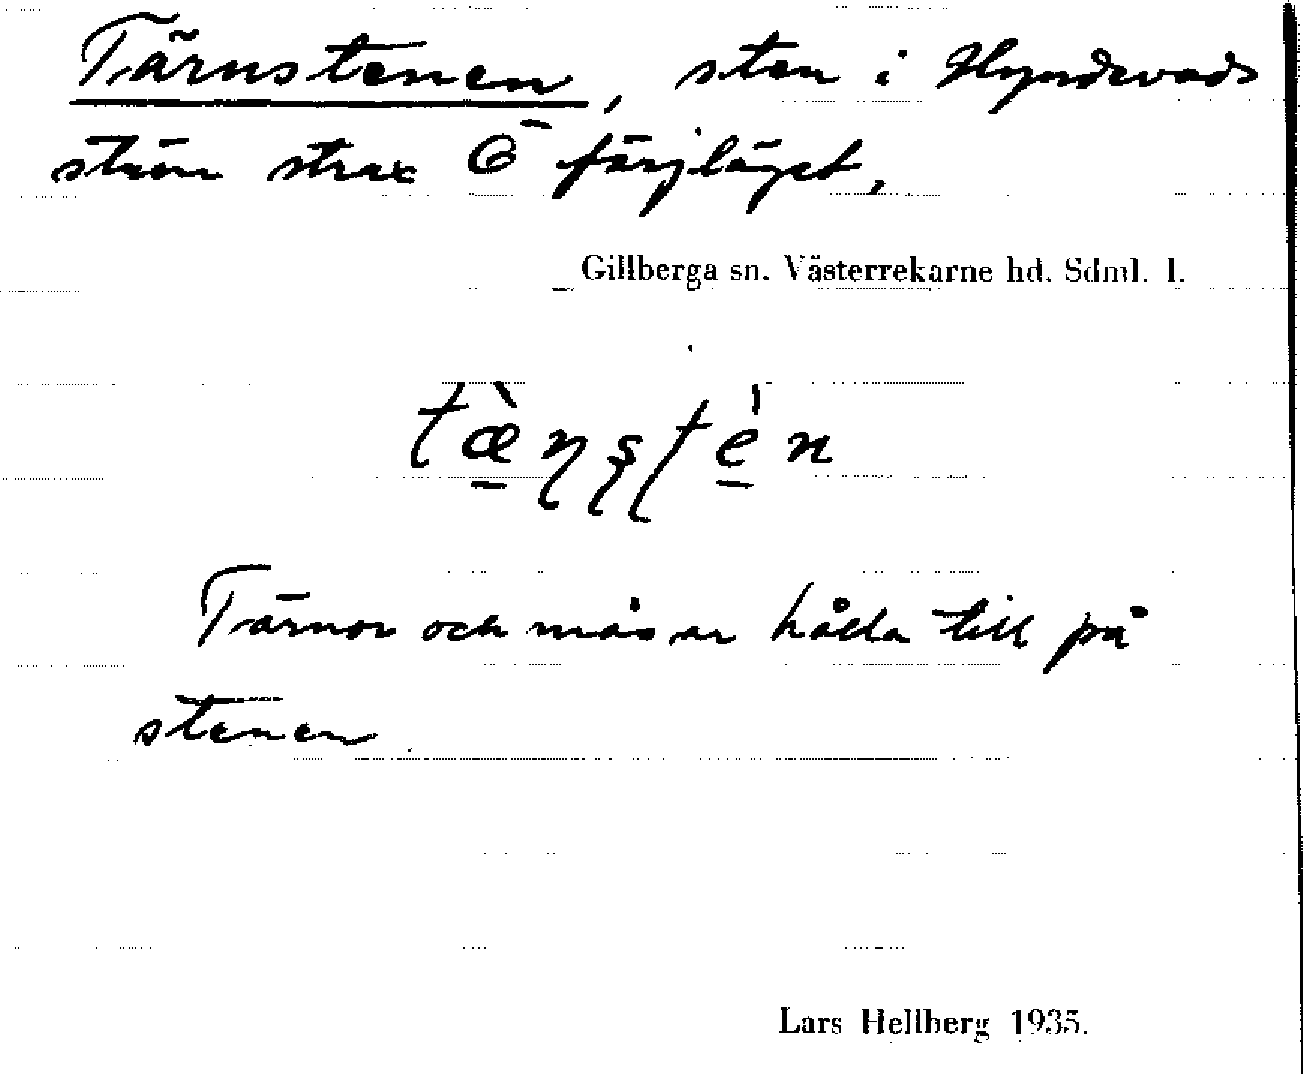 Tärnstenen, sten i Hyndevads
ström strax Ö färjläget.
Gillberga sn. Västerrekarne hd. Sdml. l.
tæ̀nstén
Tärnor och måsar hålla till på
stenen
Lars Hellberg 1935.